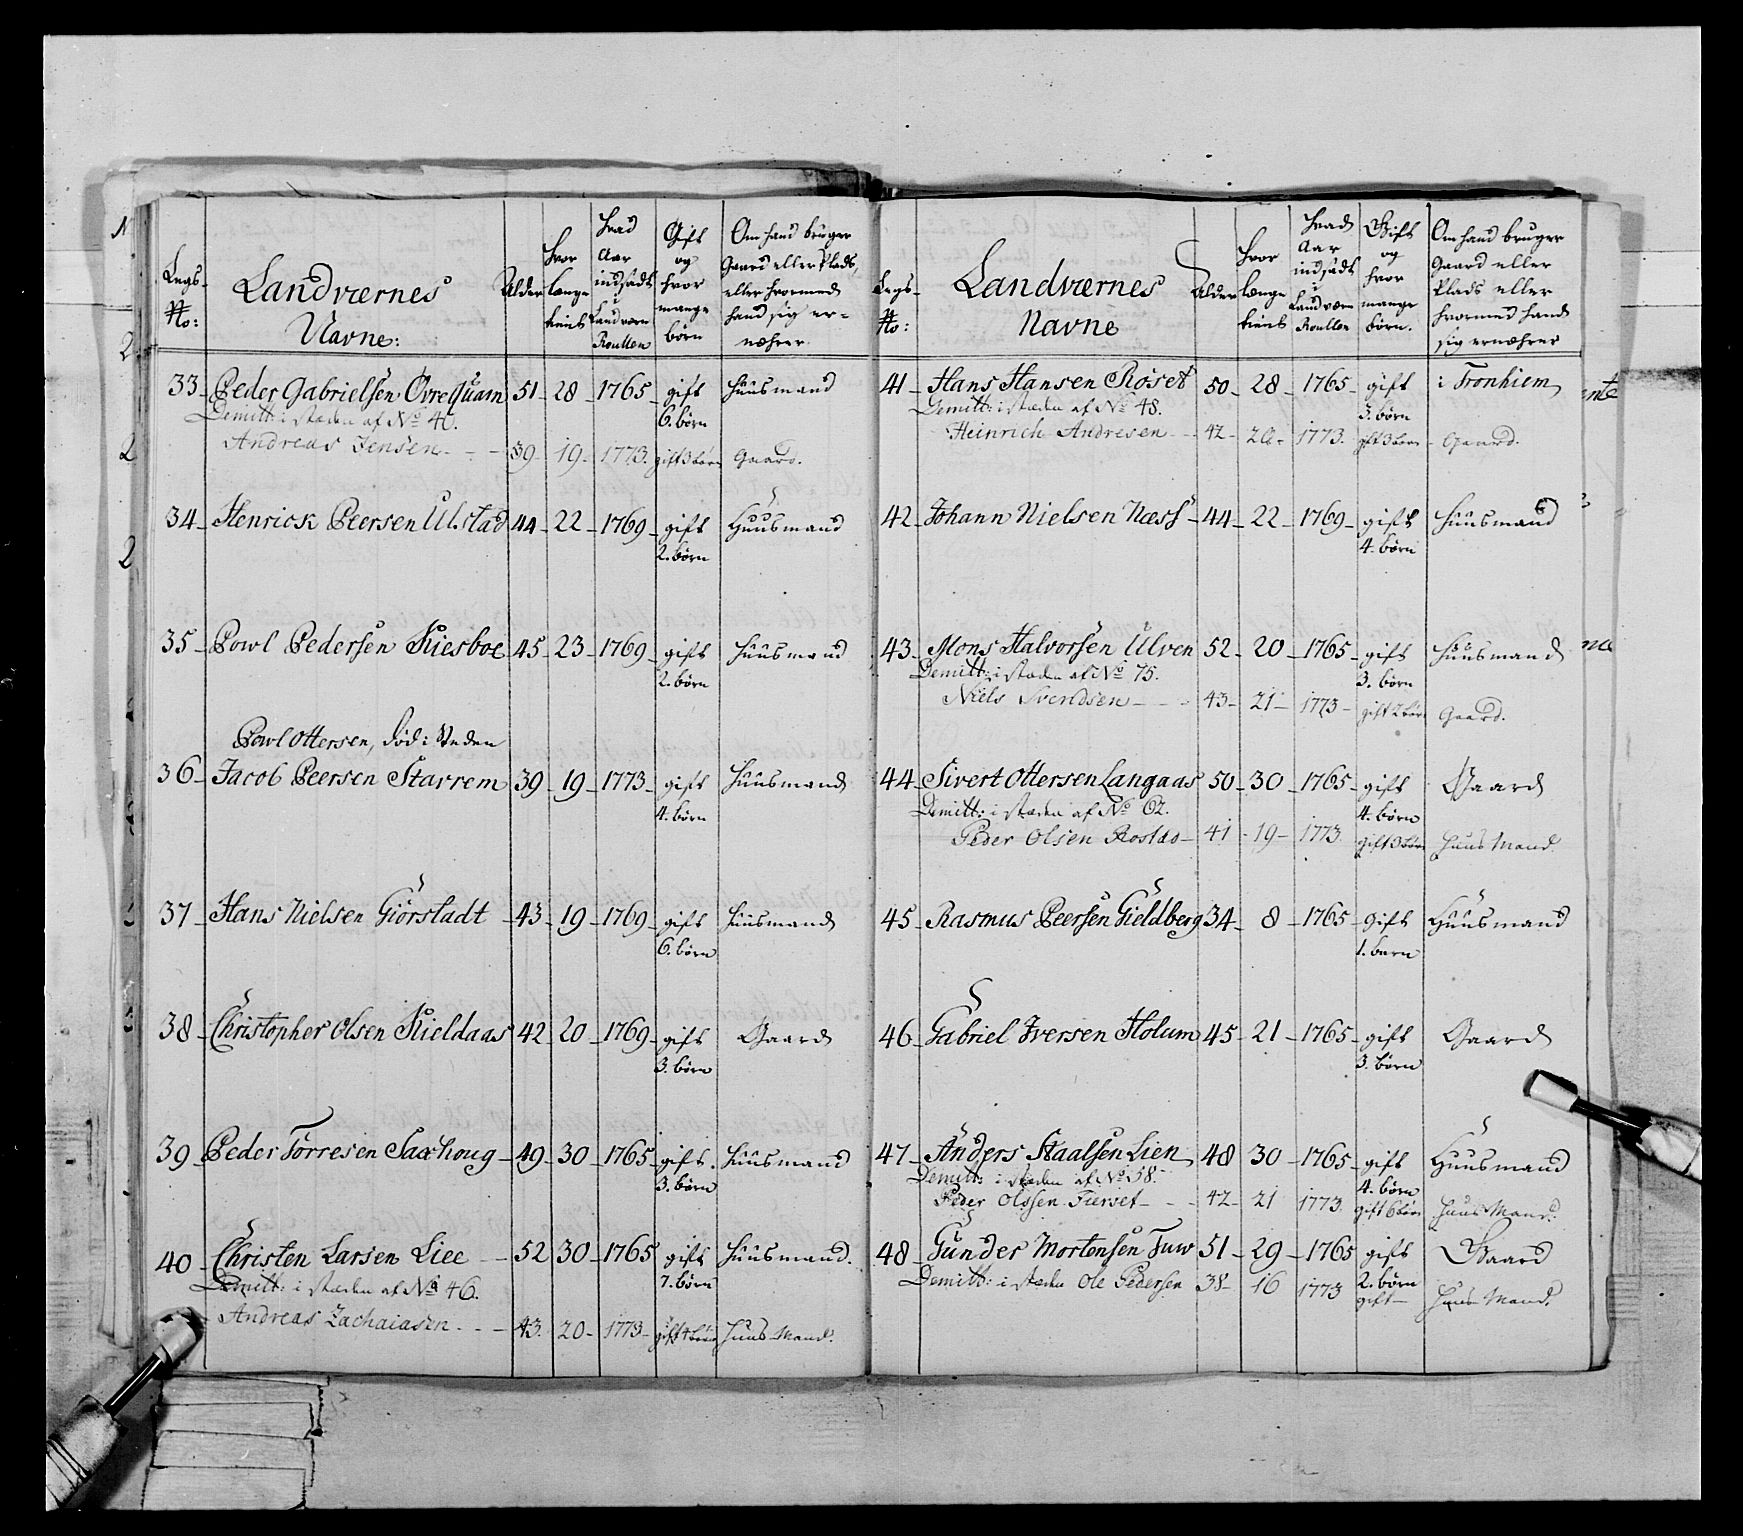 Legs-
No:
Landværnes
Navne:
Alder
hvor
længe
tient
hvad
Aar
indsadt
i
Landværn
Roullen
Gift
og
hvor
mange
børn
Om hand bruger
Gaard eller Plads,
eller hvormed
hand sig er-
næhrer
33 Peder Gabrielsen Øvre Quam 51 - 28 - 1765 - gift Huusmand
6. børn
Demitt: i stæden af No 40.
Andreas Jensen - - 39 - 19 - 1773. gift 3 børn Gaard.
34 Henrick Peersen Ulstad 44 - 22 - 1769 - gift Huusmand
2. børn
35 Powl Pedersen Kiesboe 45 - 23 - 1769 - gift Huusmand
2. børn
Powl Ottersen, død i Steden
36 Jacob Peersen Starrem 39 - 19 - 1773 - gift Huusmand
4. børn
37 Hans Nielsen Giörstadt - 43 - 19 - 1769 - gift Huusmand
6. børn
38 Christopher Olsen Kieldaas 42 - 20 - 1769 - gift Gaard
3. børn
39 Peder Torresen Saxhoug - 49 - 30 - 1765 - gift. Huusmand
3. børn
40 Christen Larsen Liee - 52 - 30 - 1765 gift Huusmand.
7. børn
Demitt: i stæden af No 46.
Andreas Zachaiasen - - 43. 20 - 1773 - gift 4 børn Huus Mand.
Legs-
No:
Landværnes
Navne
Alder
hvor
længe
tient
hvad
Aar
indsadt
i
Landværn
Roullen
Gift
og
hvor
mange
børn.
Om hand bruger
Gaard eller
Plads eller
hvormed hand
sig ernæhrer
41 Hans Hansen Röset 50 - 28 - 1765 - gift i Tronhiem
3. børn
Demitt: i stæden af No 48.
Heinrich Andresen - - 42 - 20 - 1773. gift 3 børn - Gaard.
42 Johann Nielsen Næss - 44 - 22 - 1769 - gift Huusmand
4. børn
43 Mons Halvorsen Ulven 52 - 20 - 1765 - gift Huusmand
3. børn
Demitt: i stæden af No 75.
Niels Svendsen - - 43 - 21 - 1773 - gift 2 børn Gaard.
44 Sivert Ottersen Langaas 50 - 30 - 1765 - gift Gaard
4. børn
Demitt: i stæden af No 62.
Peder Olsen Rostad - 41 - 19 - 1773. gift 3 børn Huus Mand
45 Rasmus Peersen Gieldberg 34 - 8 - 1765 - gift Huusmand
1. barn
46 Gabriel Iversen Holum 45 - 21 - 1765 - gift Gaard
3. børn
47 Anders Staalsen Lien 48 30 - 1765 - gift Huusmand
4. børn
Demitt: i stæden af No 58.
Peder Olssen Tierset - - 42 - 21 1773. gift 6 børn Huus Mand.
48 Gunder Mortensen Tuw 51 - 29 - 1765 gift Gaard
2. børn
Demitt: i stæden Ole Pedersen 38 - 16 1773 gift - Huus Mand.